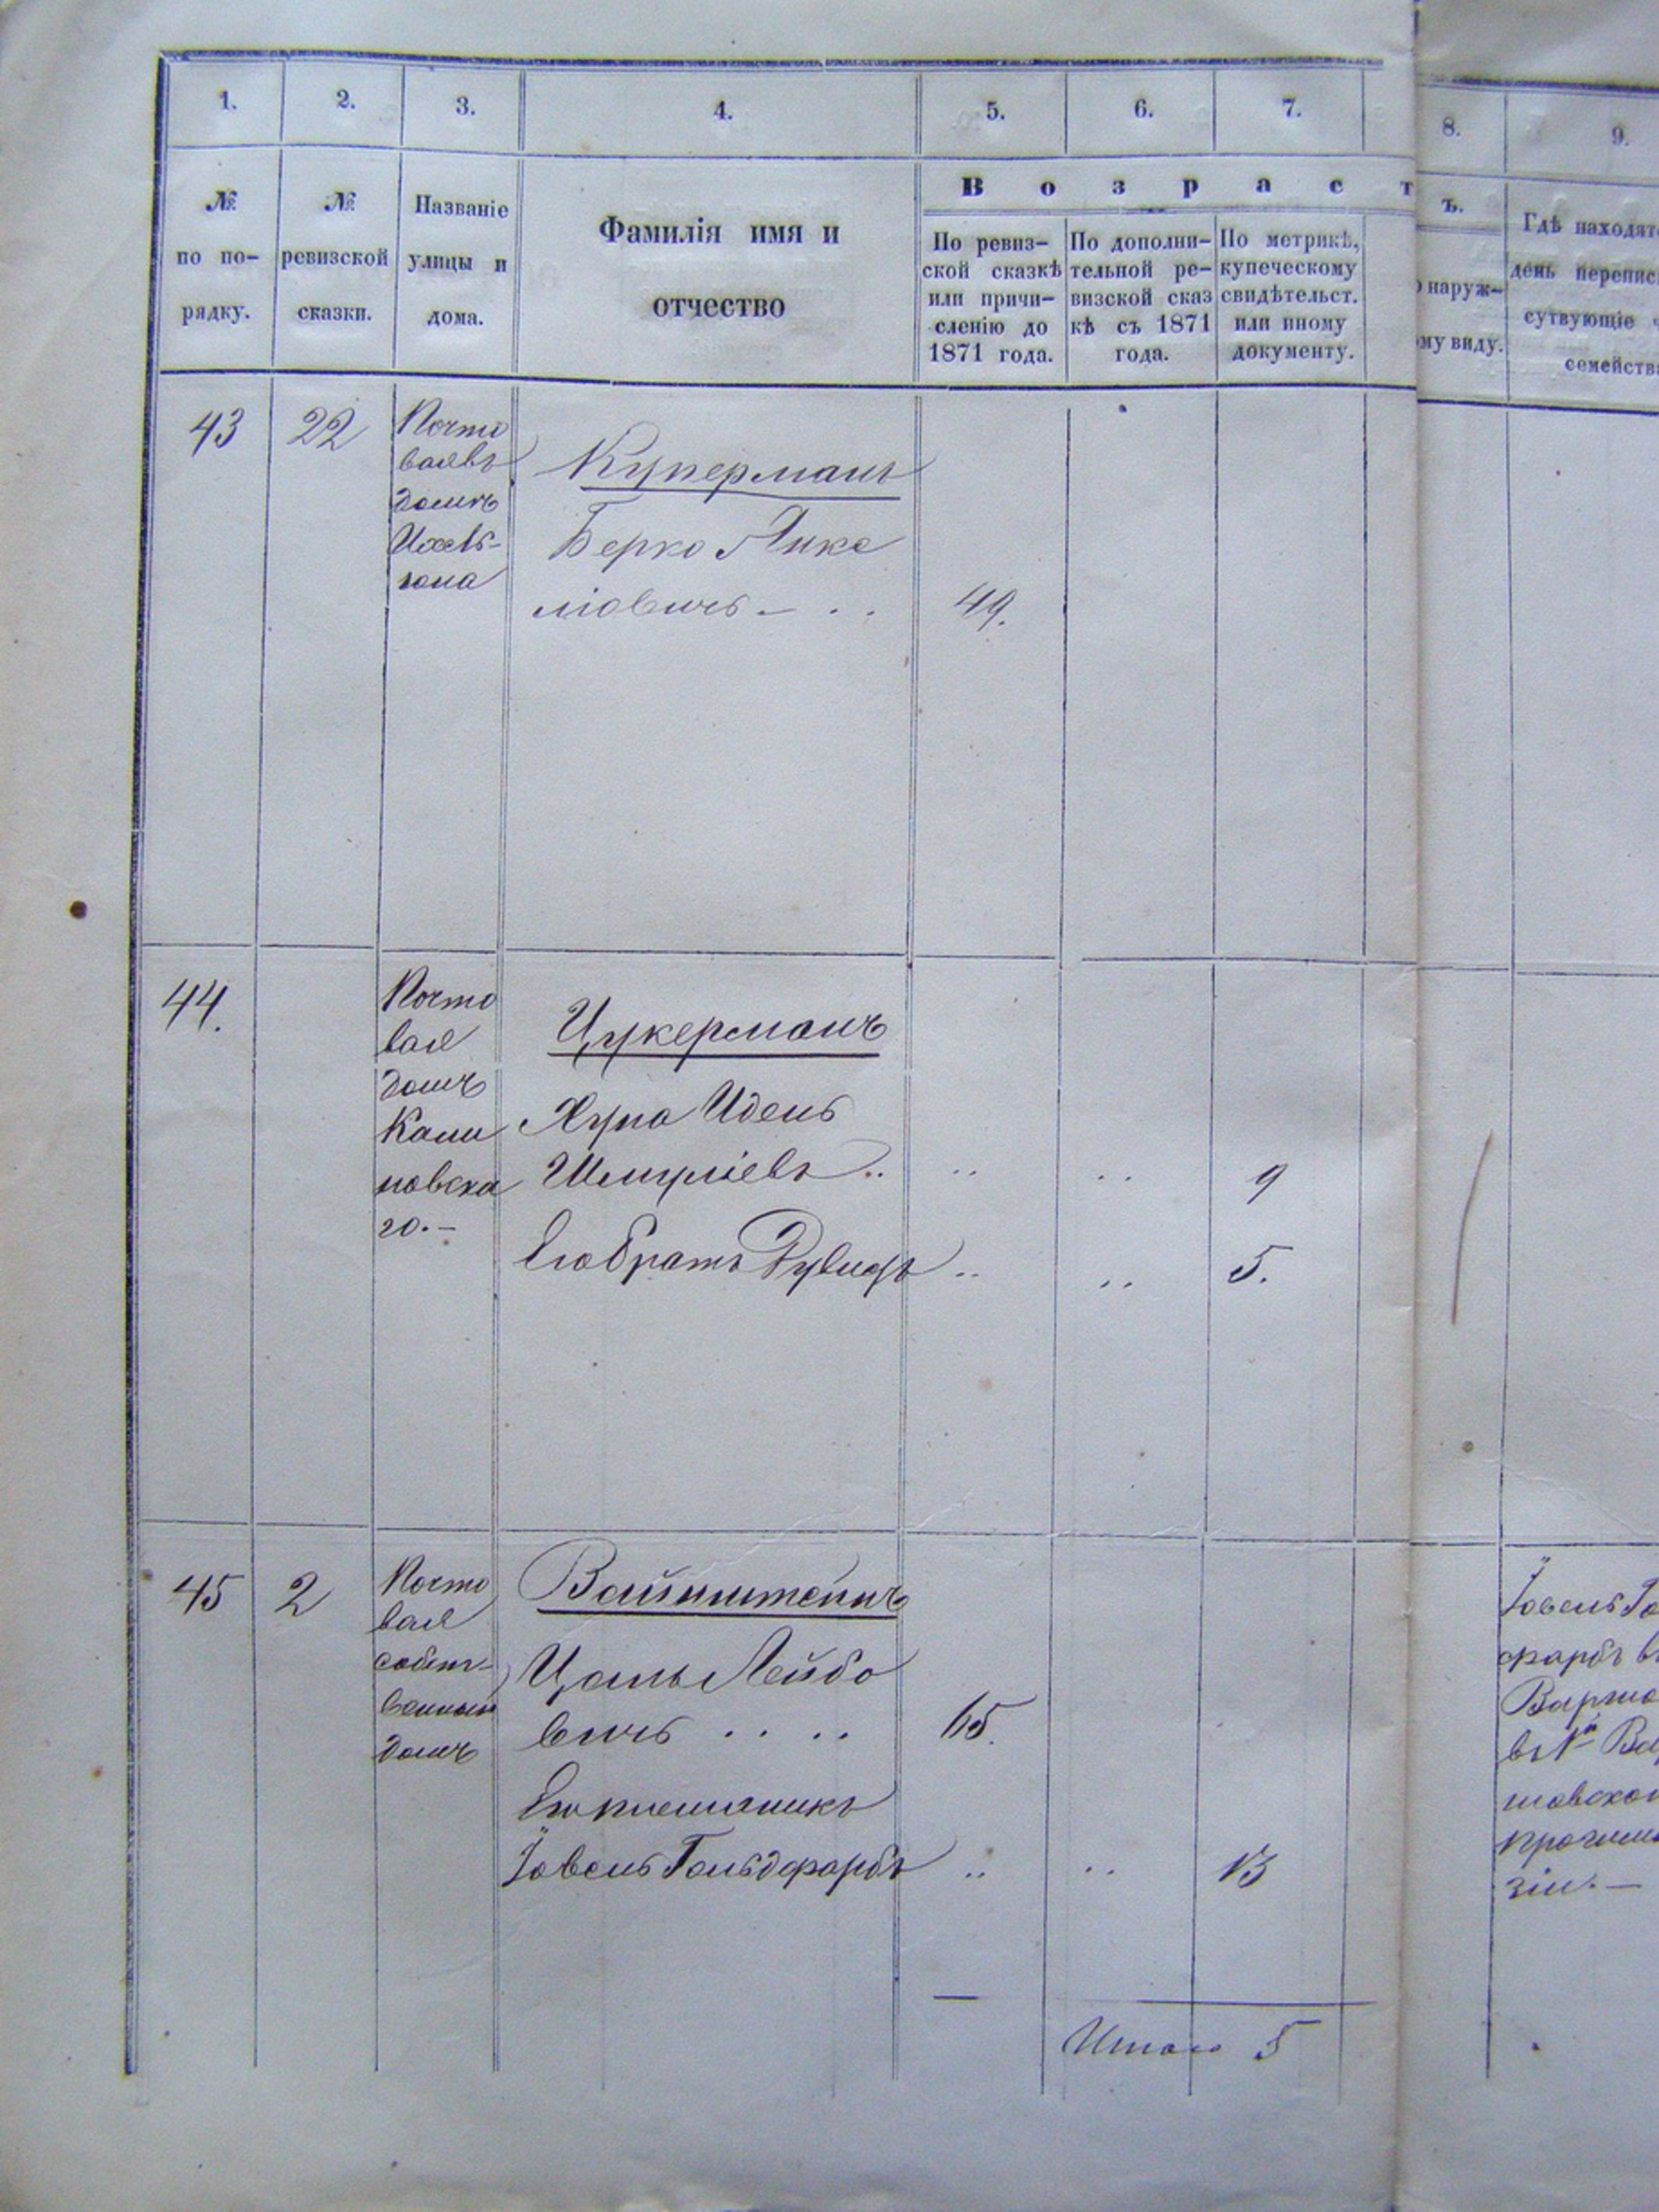 1. 2. 3. 4. 5. 6. 7. 8. 9.
№ по по-рядку.
№ ревизской сказки.
Названіе улицы и дома.
Фамилія имя и
отчество
Возрастъ.
По ревиз-
ской сказкѣ
или причи-
сленію до
1871 года.
По дополни-
тельной ре-
визской сказ
кѣ съ 1871
года.
По метрикѣ,
купеческому
свидѣтельст.
или иному
документу.
наруж-
му виду.
Гдѣ находят
день перепис
сутвующіе
семейств
43
22
Почто
вая въ
домѣ
Куперманъ
Берко Янке
ліовичъ
49.
44.
Почто
вая
домъ
Кали
новска
го.
Цукерманъ
Хуна Идель
Шмуліевъ
9
Его братъ Рувинъ
5.
45
2
Почто
вая
собст-
венный
домъ
Вайнштейнъ
Цаль Лейбо
вичъ
65.
Его племяникъ
Іовель Гольдфарбъ
13
Итого 5
Іовель Го
фарбъ въ
Варша
въ №й Вар
шавской
прогимн
зіи.